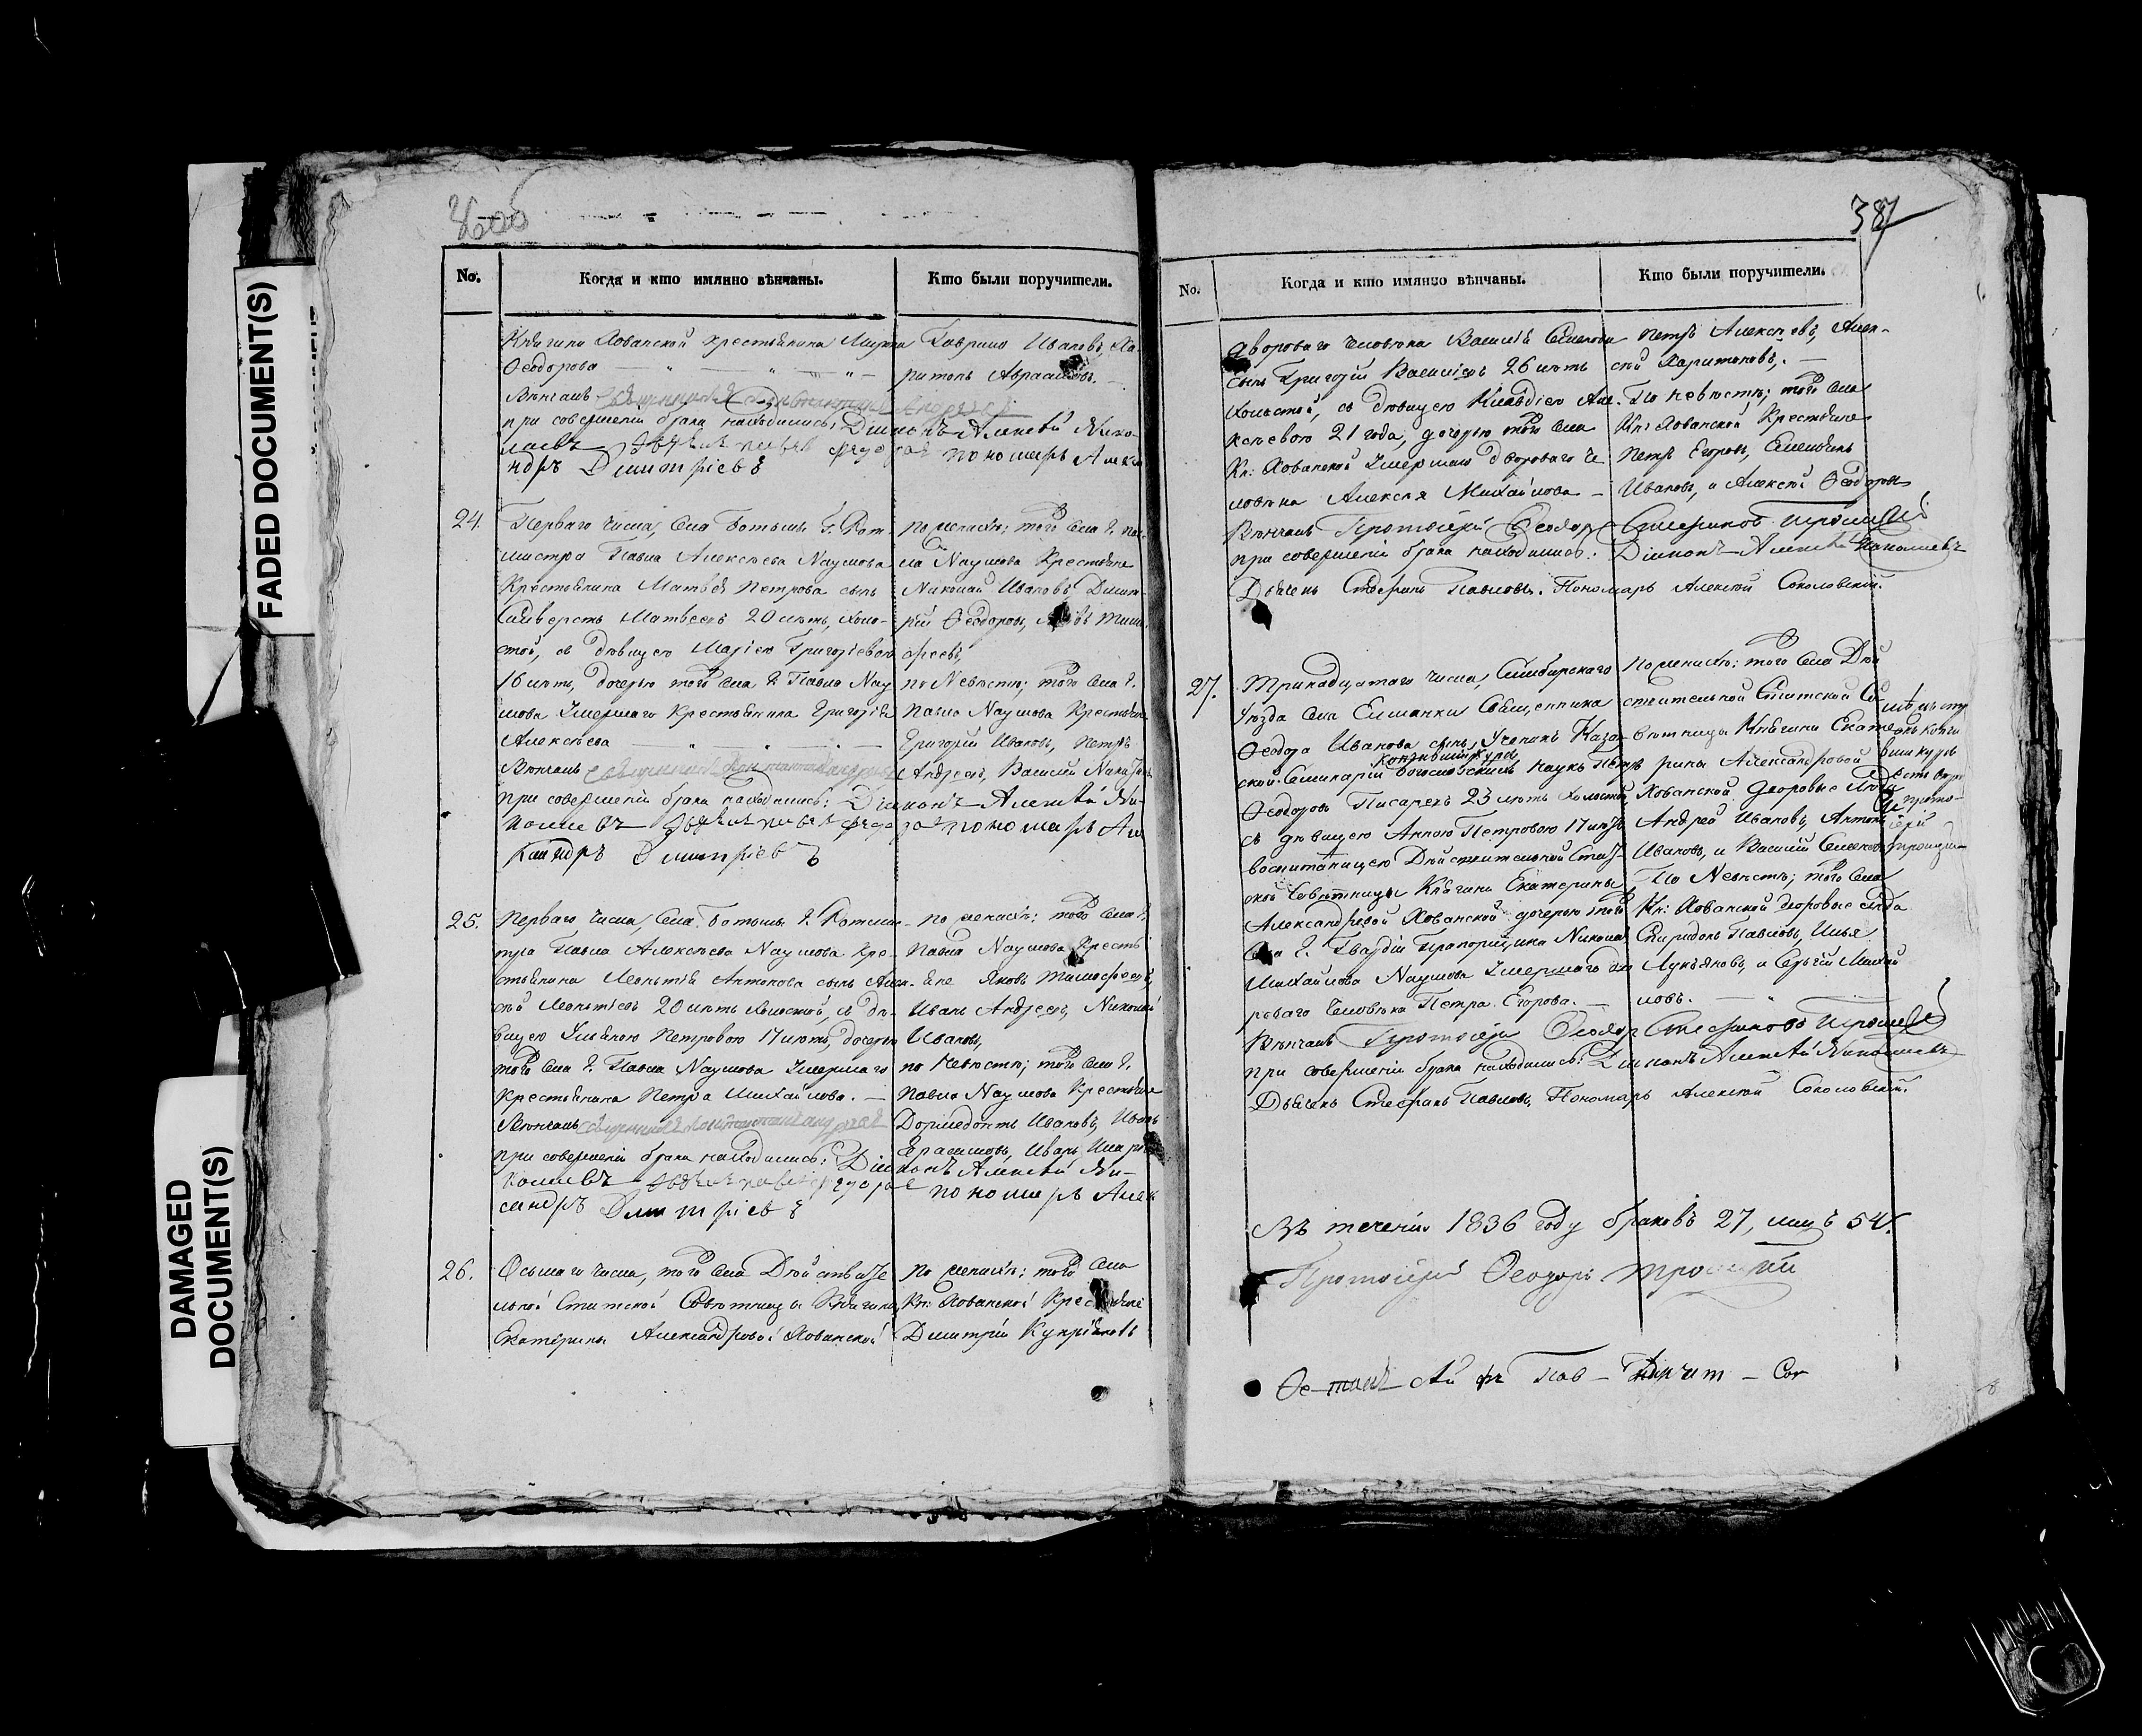 FADED DOCUMENT(S)
DAMAGED
DOCUMENT(S)
No.
Когда и кто имянно вѣнчаны.
Кто были поручители.
Княгини Хованской крестьянина
Ѳеодорова
Вѣнчалъ
при совершеніи брака находились: Діаконъ Алексѣй Нико-
лаевъ пономарь Алекса
ндръ Димитріевъ
Гаврило Ивановъ, Ха-
ритонъ
24.
Перваго числа, села Ботьмы Г. Рот-
мистра Павла Алексѣева Наумова
Крестьянина Матвѣя Петрова сынъ
Матвѣевъ 20 лѣтъ, холо-
стой, съ дѣвицею Маріею Григорьевою
16 лѣтъ, дочерью того села Г. Павла Нау
мова Умершаго Крестьянина Григорія
Алексѣева
Вѣнчалъ священникъ
при совершеніи брака находились: Діаконъ Алексѣй Ни-
колаевъ пономарь Але
ксандръ Димитріевъ
по женихѣ: того села Г. Пав-
ла Наумова Крестьяне
Николай Ивановъ, Димит
рій Ѳеодоровъ, Тимо-
феевъ,
по Невѣстѣ; того села Г.
Павла Наумова Крестьяне
Григорій Ивановъ, Петръ
Андреевъ, Василій
25.
Перваго числа, Села Ботьмы Г. Ротми-
стра Павла Алексѣева Наумова Кре-
стьянина Леонтія Антонова сынъ Алек-
сѣй Леонтіевъ 20 лѣтъ холостой, съ дѣ-
вицею Ульяною Петровою 17 лѣтъ, дочерью
того села Г. Павла Наумова Умершаго
Крестьянина Петра Михайлова.
Вѣнчалъ священникъ
при совершеніи брака находились: Діаконъ Алексѣй Ни-
колаевъ пономарь Алек
сандръ Димитріевъ
по женихѣ: того села Г.
Павла Наумова Кресть
яне Яковъ Тимофеевъ,
Иванъ Андреевъ, Николай
Ивановъ,
по Невѣстѣ; того села Г.
Павла Наумова Крестьяне
Дормедонтъ Ивановъ, Иванъ
Герасимовъ, Иванъ
26.
Осьмаго числа, того села Дѣйствите
льной Статской Совѣтницы Княгини
Екатерины Александровой Хованской
по женихѣ: того села
Кн: Хованской Крестьяне
Димитрій
387
No.
Когда и кто имянно вѣнчаны.
Кто были поручители.
двороваго человѣка Василія Семенова
сынъ Григорій Васильевъ 26 лѣтъ
холостой, съ дѣвицею Клавдіею Але-
ксѣевою 21 года, дочерью того села
Кн: Хованской Умершаго двороваго че
ловѣка Алексѣя Михайлова
Вѣнчалъ Протоіерей Ѳеодоръ Стефановъ Троицкій
при совершеніи брака находились: Діаконъ Алексѣй Николаевъ
Дьячекъ Стефанъ Павловъ. Пономарь Алексѣй Соколовскій.
Петръ Алексѣевъ, Алек-
сѣй Харитоновъ.
По невѣстѣ; того села
Кн: Хованской Крестьяне
Петръ Егоровъ,
Ивановъ, и Алексѣй Ѳеодоровъ
27.
Тринадцатаго числа, Симбирскаго
Уѣзда села Елшанки Священника
Ѳеодора Иванова сынъ, Ученикъ Каза-
кончившій курсъ
ской Семинаріи богословскихъ наукъ Петръ
Ѳеодоровъ Писаревъ 23 лѣтъ холостой,
съ дѣвицею Анною Петровою 17 лѣтъ
воспитанницею Дѣйствительной Статс-
кой Совѣтницы Княгини Екатерины
Александровой Хованской дочерью того
села Г. Гвардіи Прапорщика Николая
Михайлова Наумова Умершаго дво
роваго человѣка Петра Егорова.
Вѣнчалъ Протоіерей Ѳеодоръ Стефановъ Троицкій
при совершеніи брака находились: Діаконъ Алексѣй Николаевъ
Дьячекъ Стефанъ Павловъ, Пономарь Алексѣй Соколовскій.
По женихѣ: того села Дѣй
ствительной Статской Со-
вѣтницы Княгини Екате-
рины Александровой
Хованской дворовые люди
Андрей Ивановъ, Антонъ
Ивановъ, и Василій Семеновъ
По Невѣстѣ; того села
Кн: Хованской дворовые люди
Спиридонъ Павловъ, Илья
Лукьяновъ, и Сергѣй Михай
ловъ.
Въ теченіи 1836 году браковъ 27, лицъ 54.
Протоіерей Ѳеодоръ Троицкій